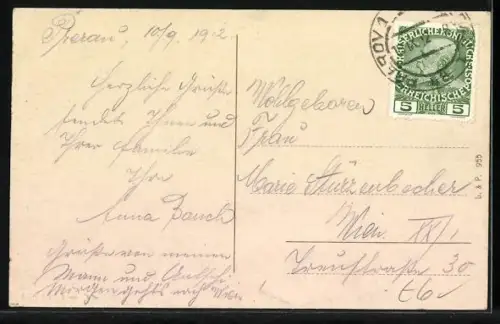 Prerau, 10/9 1912
Herzliche Grüße
sendet Ihnen und
Ihrer Familie
Ihre
Anna Bauch
Grüße von meinem
Mann und
Morgen geht's nach Wien
Wohlgeboren
Frau
Marie Stürzenbecher
Wien XX/1
Treustraße 30
KAISERLICHE KÖNIGLICHE
ÖSTERREICHISCHE
5 HELLER 5
PŘEROV 1
B. & P. 955